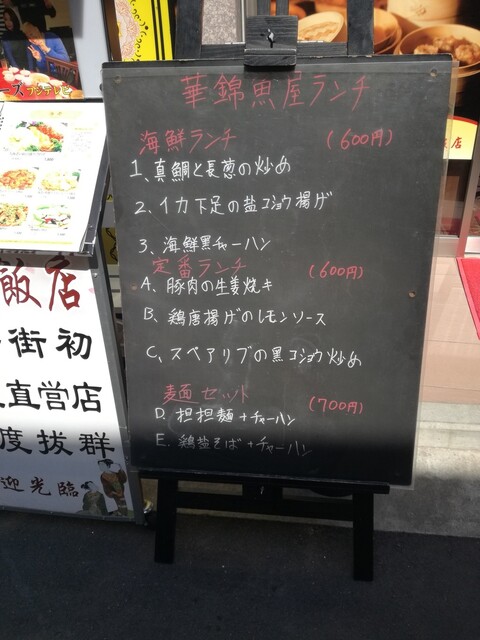 華錦魚屋ランチ
海鮮ランチ (600円)
1、真鯛と長葱の炒め
2、イカ下足の塩コショウ揚げ
3、海鮮黒チャーハン
定番ランチ (600円)
A、豚肉の生姜焼キ
B、鶏唐揚げのレモンソース
C、スペアリブの黒コショウ炒め
麺セット (700円)
D、担担麺+チャーハン
E、鶏塩そば+チャーハン
飯店
街初
直営店
度抜群
迎光臨
フジテレビ
店